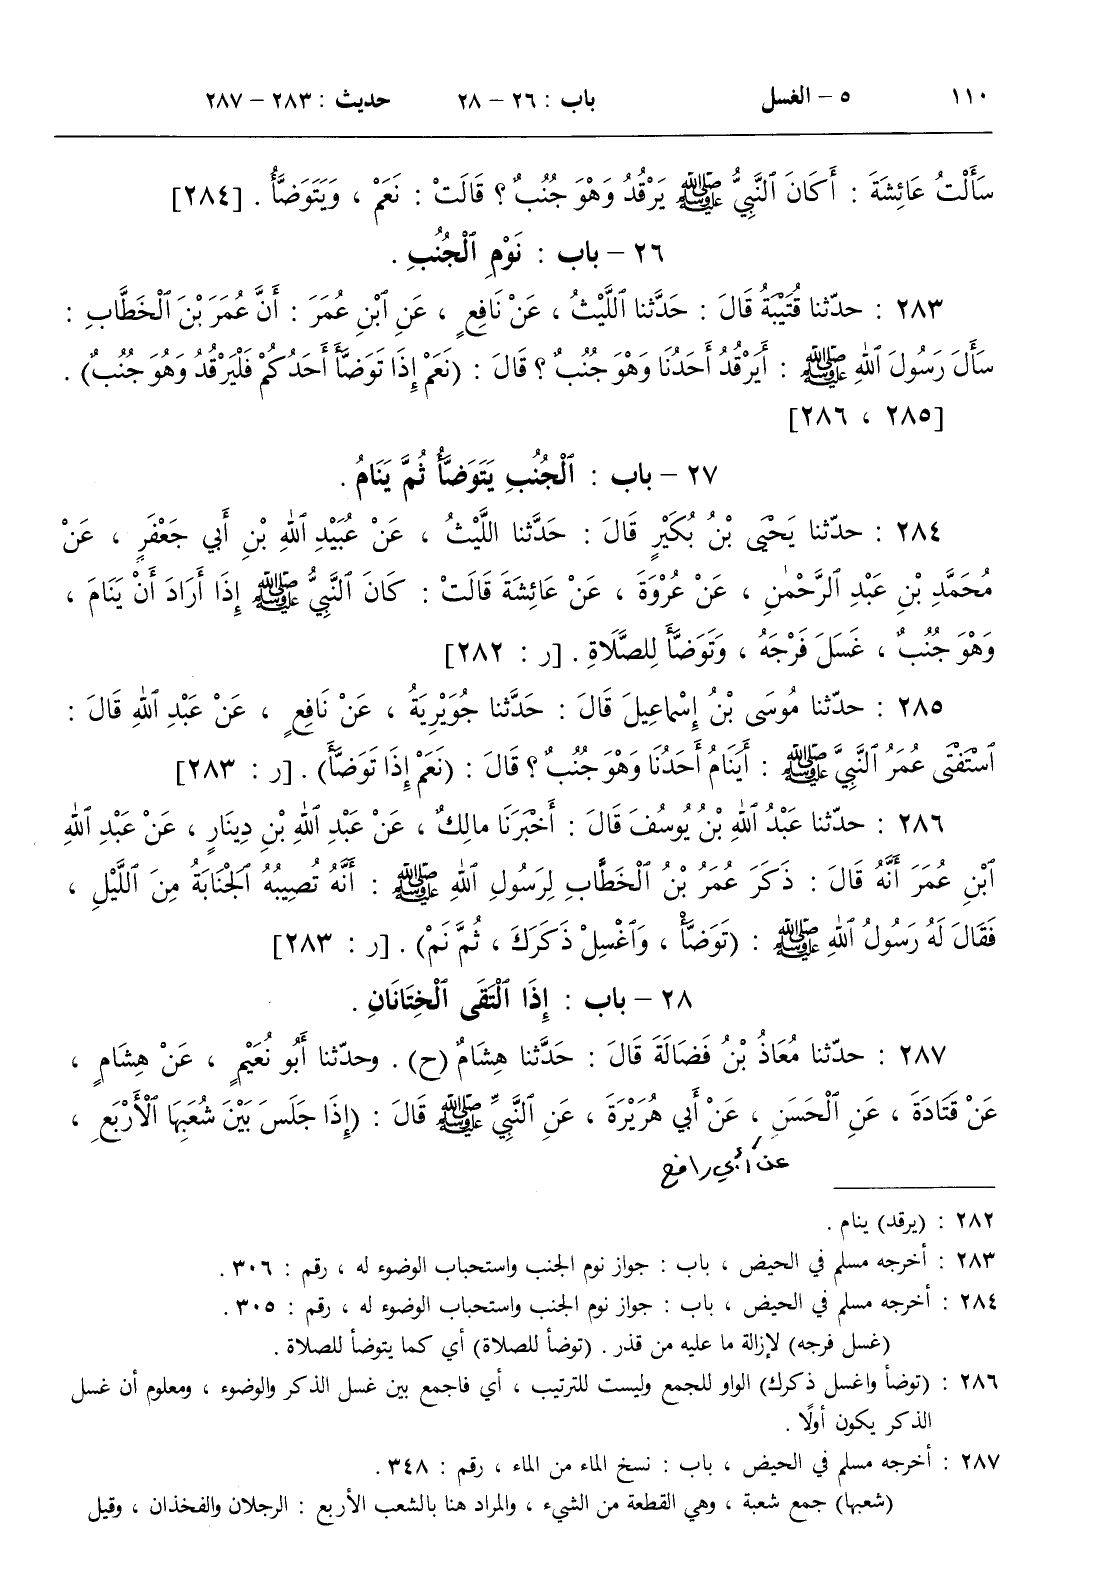 ١١٠ ٥ – الغسل باب : ٢٦ – ٢٨ حديث : ٢٨٣ – ٢٨٧
سَأَلْتُ عَائِشَةَ : أَكَانَ ٱلنَّبِيُّ ﷺ يَرْقُدُ وَهْوَ جُنُبٌ ؟ قَالَتْ : نَعَمْ ، وَيَتَوَضَّأُ . [٢٨٤]
٢٦ – باب : نَوْمِ ٱلْجُنُبِ .
٢٨٣ : حدّثنا قُتَيْبَةُ قَالَ : حَدَّثَنا ٱللَّيْثُ ، عَنْ نَافِعٍ ، عَنِ ٱبْنِ عُمَرَ : أَنَّ عُمَرَ بْنَ ٱلْخَطَّابِ :
سَأَلَ رَسُولَ ٱللهِ ﷺ : أَيَرْقُدُ أَحَدُنَا وَهْوَ جُنُبٌ ؟ قَالَ : (نَعَمْ إِذَا تَوَضَّأَ أَحَدُكُمْ فَلْيَرْقُدْ وَهُوَ جُنُبٌ) .
[٢٨٥ ، ٢٨٦]
٢٧ – باب : ٱلْجُنُبِ يَتَوَضَّأُ ثُمَّ يَنَامُ .
٢٨٤ : حدّثنا يَحْيَى بْنُ بُكَيْرٍ قَالَ : حَدَّثَنا اللَّيْثُ ، عَنْ عُبَيْدِ ٱللهِ بْنِ أَبي جَعْفَرٍ ، عَنْ
مُحَمَّدِ بْنِ عَبْدِ ٱلرَّحْمٰنِ ، عَنْ عُرْوَةَ ، عَنْ عَائِشَةَ قَالَتْ : كَانَ ٱلنَّبِيُّ ﷺ إِذَا أَرَادَ أَنْ يَنَامَ ،
وَهْوَ جُنُبٌ ، غَسَلَ فَرْجَهُ ، وَتَوَضَّأَ لِلصَّلَاةِ . [ر : ٢٨٢]
٢٨٥ : حدّثنا مُوسَى بْنُ إِسْمَاعِيلَ قَالَ : حَدَّثَنا جُوَيْرِيَةُ ، عَنْ نَافِعٍ ، عَنْ عَبْدِ ٱللهِ قَالَ :
ٱسْتَفْتَى عُمَرُ ٱلنَّبِيَّ ﷺ : أَيَنَامُ أَحَدُنَا وَهْوَ جُنُبٌ ؟ قَالَ : (نَعَمْ إِذَا تَوَضَّأَ) . [ر : ٢٨٣]
٢٨٦ : حدّثنا عَبْدُ ٱللهِ بْنُ يُوسُفَ قَالَ : أَخْبَرَنَا مالِكٌ ، عَنْ عَبْدِ ٱللهِ بْنِ دِينَارٍ ، عَنْ عَبْدِ ٱللهِ
ٱبْنِ عُمَرَ أَنَّهُ قَالَ : ذَكَرَ عُمَرُ بْنُ ٱلْخَطَّابِ لِرَسُولِ ٱللهِ ﷺ : أَنَّهُ تُصِيبُهُ ٱلجَنَابَةُ مِنَ ٱللَّيْلِ ،
فَقَالَ لَهُ رَسُولُ ٱللهِ ﷺ : (تَوَضَّأْ ، وَٱغْسِلْ ذَكَرَكَ ، ثُمَّ نَمْ) . [ر : ٢٨٣]
٢٨ – باب : إِذَا ٱلْتَقَى ٱلْخِتَانَانِ .
٢٨٧ : حدّثنا مُعَاذُ بْنُ فَضَالَةَ قَالَ : حَدَّثَنا هِشَامٌ (ح) . وحدّثنا أَبُو نُعَيْمٍ ، عَنْ هِشَامٍ ،
عَنْ قَتَادَةَ ، عَنِ ٱلْحَسَنِ ، عَنْ أَبي هُرَيْرَةَ ، عَنِ ٱلنَّبِيِّ ﷺ قَالَ : (إِذَا جَلَسَ بَيْنَ شُعَبِهَا ٱلْأَرْبَعِ ،
عن أبي رافع
٢٨٢ : (يرقد) ينام .
٢٨٣ : أخرجه مسلم في الحيض ، باب : جواز نوم الجنب واستحباب الوضوء له ، رقم : ٣٠٦ .
٢٨٤ : أخرجه مسلم في الحيض ، باب : جواز نوم الجنب واستحباب الوضوء له ، رقم : ٣٠٥ .
(غسل فرجه) لإزالة ما عليه من قذر . (توضأ للصلاة) أي كما يتوضأ للصلاة .
٢٨٦ : (توضأ واغسل ذكرك) الواو للجمع وليست للترتيب ، أي فاجمع بين غسل الذكر والوضوء ، ومعلوم أن غسل
الذكر يكون أولًا .
٢٨٧ : أخرجه مسلم في الحيض ، باب : نسخ الماء من الماء ، رقم : ٣٤٨ .
(شعبها) جمع شعبة ، وهي القطعة من الشيء ، والمراد هنا بالشعب الأربع : الرجلان والفخذان ، وقيل